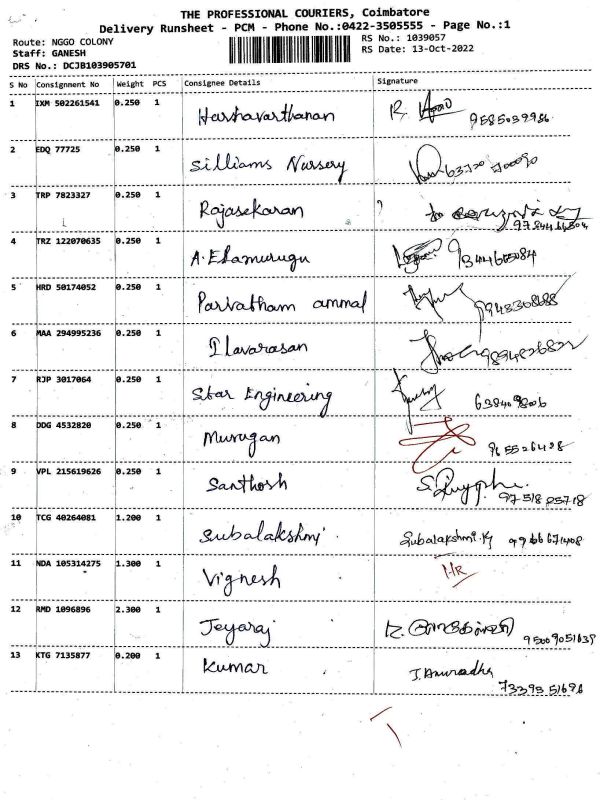 THE PROFESSIONAL COURIERS, Coimbatore
Delivery Runsheet - PCM - Phone No.:0422-3505555 - Page No.:1
Route: NGGO COLONY
RS No.: 1039057
Staff: GANESH
RS Date: 13-Oct-2022
DRS No.: DCJB103905701
S No Consignment No Weight PCS Consignee Details Signature
1 IXM 502261541 0.250 1 Harshavarthanan R.
9585039986
2 EDQ 77725 0.250 1 Silliams Nursery
3 TRP 7823327 0.250 1 Rajasekaran
4 TRZ 122070635 0.250 1 A.Elamurugu
5 HRD 50174052 0.250 1 Parvatham ammal
6 MAA 294995236 0.250 1 Ilavarasan
7 RJP 3017064 0.250 1 Star Engineering
8 DDG 4532820 0.250 1 Murugan
9 VPL 215619626 0.250 1 Santhosh
10 TCG 40264081 1.200 1 Subalakshmi Subalakshmi.K
11 NDA 105314275 1.300 1 Vignesh HR
12 RMD 1096896 2.300 1 Jeyaraj
13 KTG 7135877 0.200 1 Kumar J.Anuradha
73393 51696